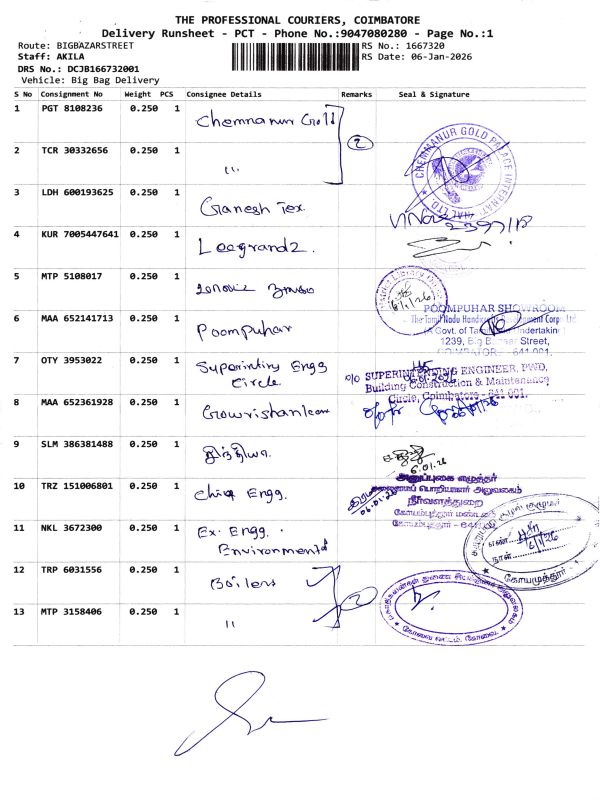 THE PROFESSIONAL COURIERS, COIMBATORE
Delivery Runsheet - PCT - Phone No.:9047080280 - Page No.:1
Route: BIGBAZARSTREET
Staff: AKILA
DRS No.: DCJB166732001
Vehicle: Big Bag Delivery
RS No.: 1667320
RS Date: 06-Jan-2026
S No Consignment No Weight PCS Consignee Details Remarks Seal & Signature
1 PGT 8108236 0.250 1 Chemnanur Gold
2 TCR 30332656 0.250 1 "
2
CHEMMANUR GOLD PALACE INTERNATIONAL LTD
3 LDH 600193625 0.250 1 Ganesh Tex.
4 KUR 7005447641 0.250 1 Leegrandz.
5 MTP 5108017 0.250 1
6/1/26
6 MAA 652141713 0.250 1 Poompuhar
POOMPUHAR SHOWROOM
The Tamil Nadu Handicrafts Development Corpn Ltd
(A Govt. of Tamil Nadu Undertaking)
1239, Big Bazaar Street,
COIMBATORE - 641 001.
7 OTY 3953022 0.250 1 Superinting Engg
Circle
O/O SUPERINTENDING ENGINEER, PWD.
Building Construction & Maintenance
Circle, Coimbatore - 641 001.
8 MAA 652361928 0.250 1 Gowrishankar
9 SLM 386381488 0.250 1 இந்தியா
6.01.26
10 TRZ 151006801 0.250 1 Chief Engg.
06.01.26
அனுப்புகை எழுத்தர்
தலைமைப் பொறியாளர் அலுவலகம்
நீர்வளத்துறை
கோயம்புத்தூர் மண்டலம்
கோயம்புத்தூர் - 641
11 NKL 3672300 0.250 1 Ex. Engg.
Environmental
எண்
நாள் 6/1/26
கோயமுத்தூர் - 1
12 TRP 6031556 0.250 1 Boilers
13 MTP 3158406 0.250 1 "
2
கோவை வட்டம், கோவை.